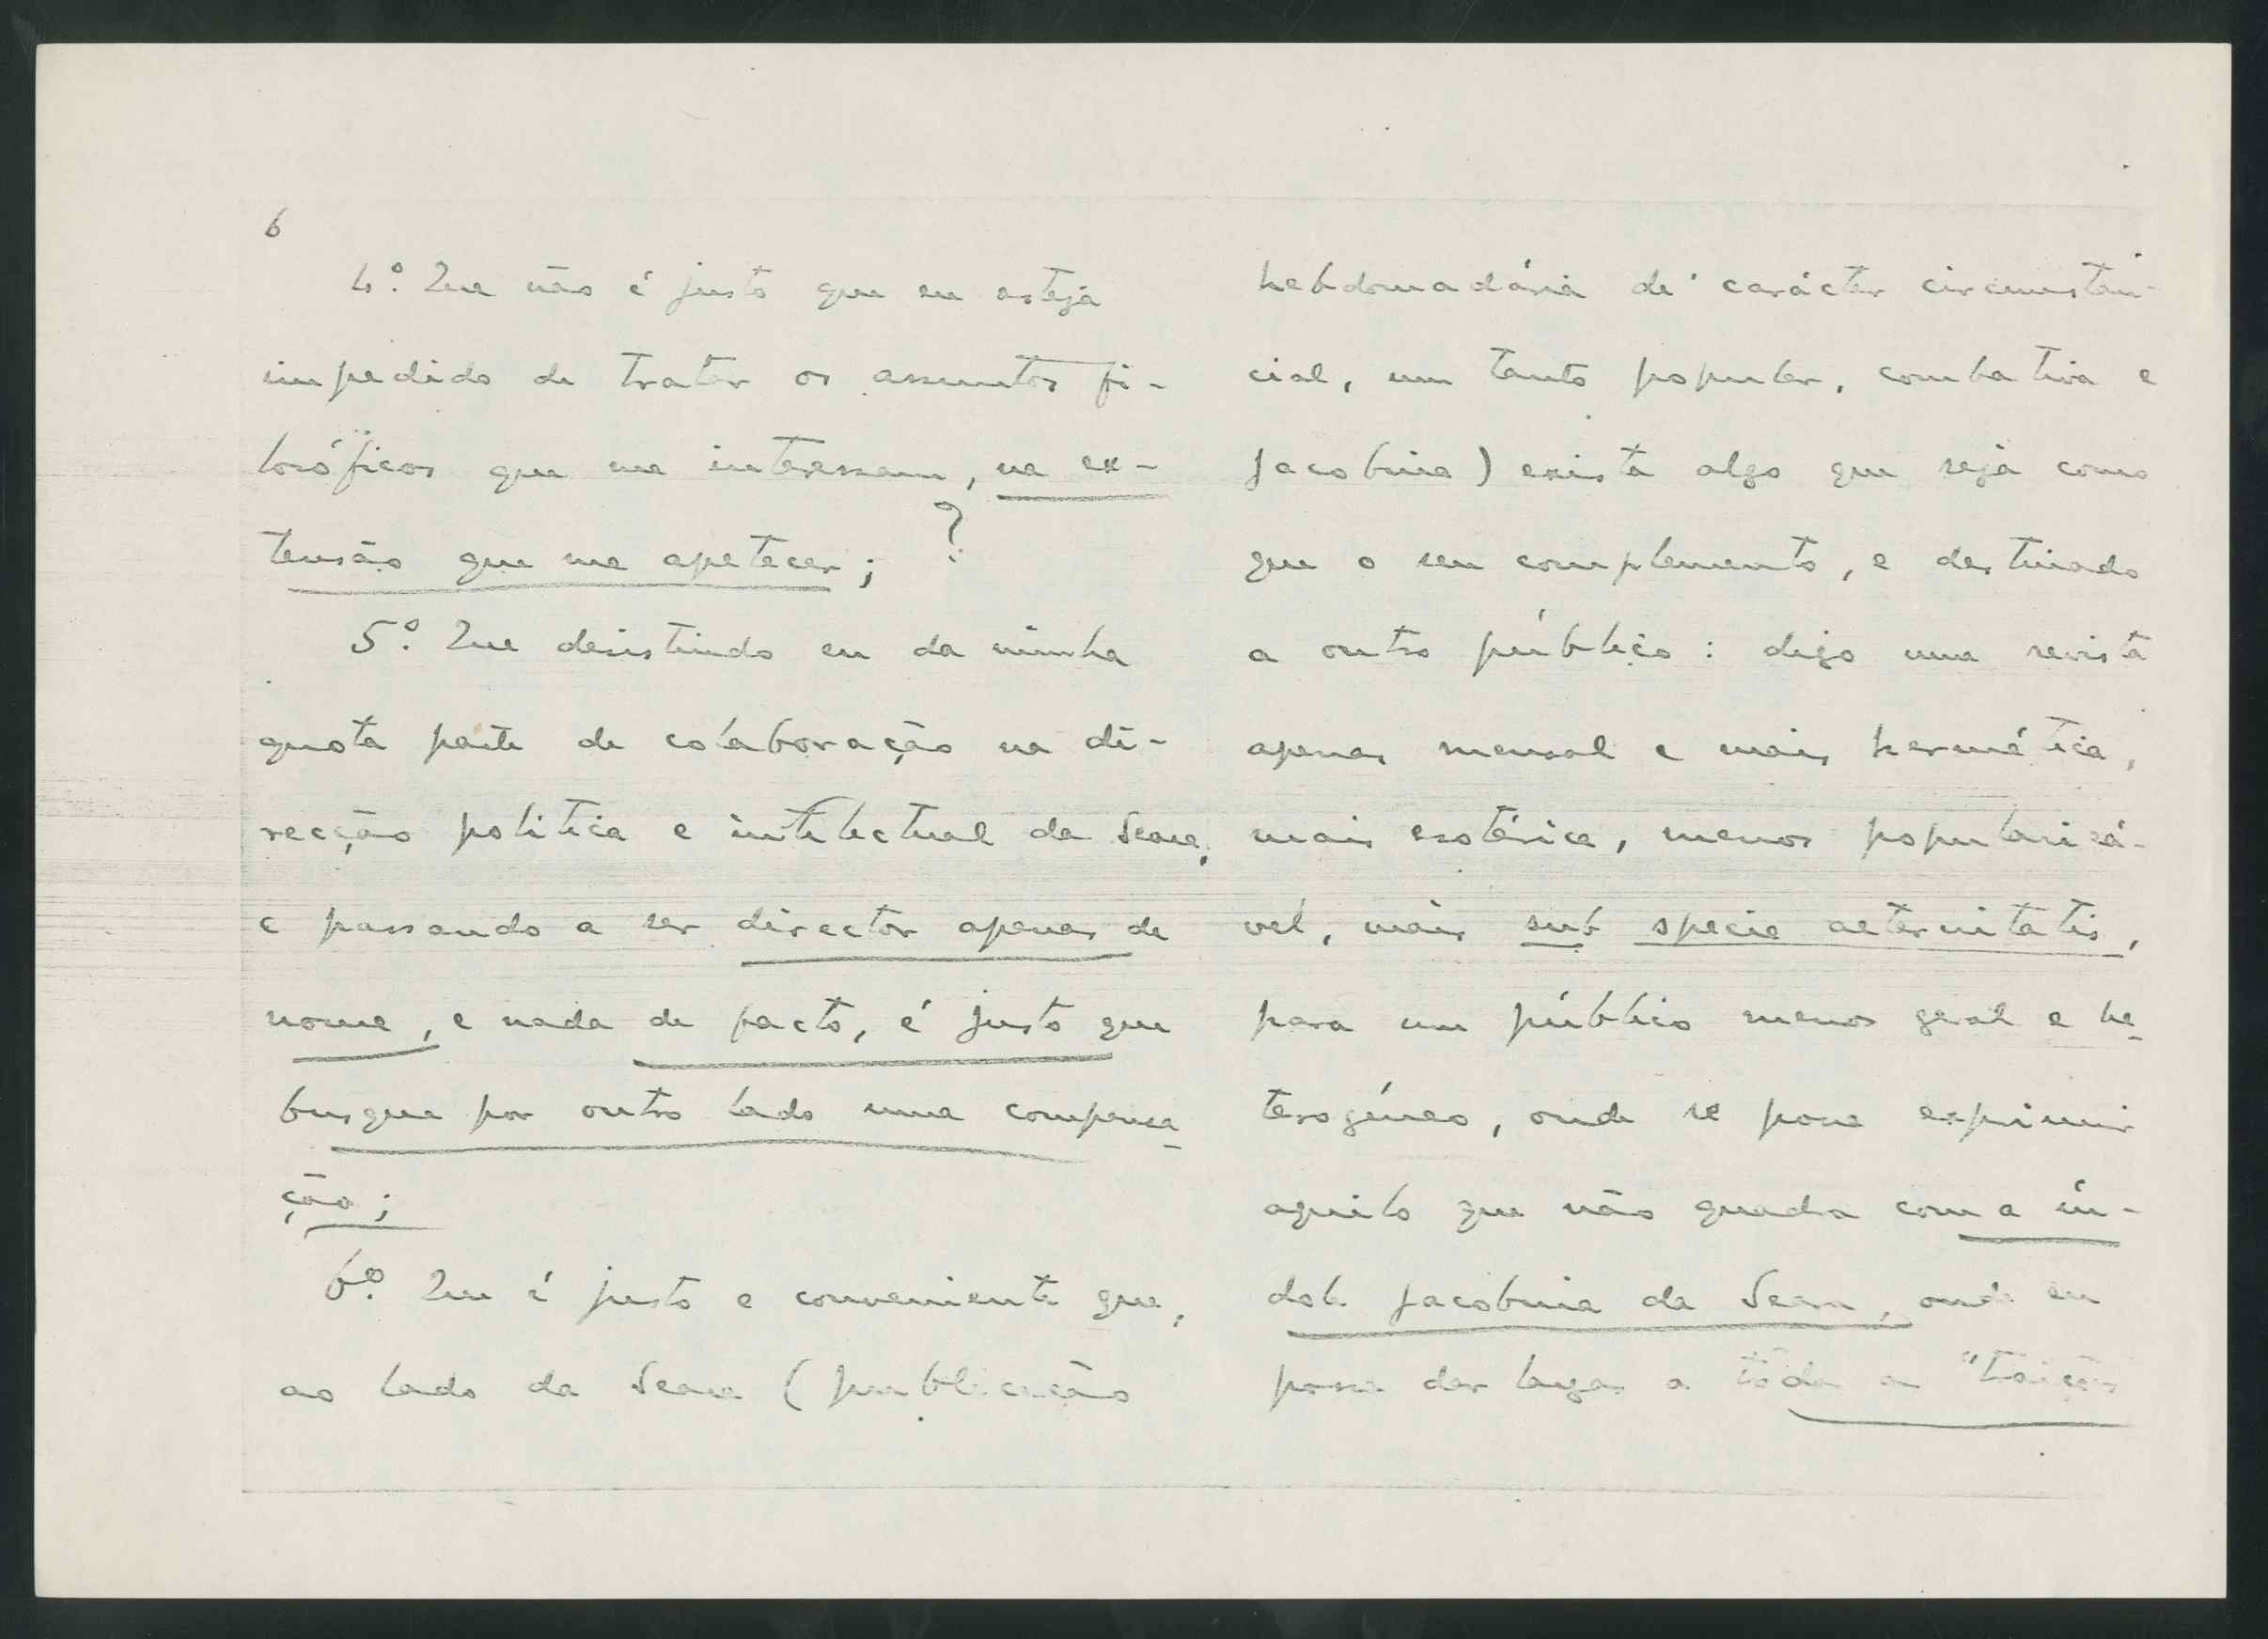 6
4º. Que não é justo que eu esteja
impedido de tratar os assuntos fi-
losóficos que me interessam, na ex-
tensão que me apetecer; ?
5º. Que desistindo eu da minha
quota parte de colaboração na di-
recção politica e intelectual da Seara,
e passando a ser director apenas de
nome, e nada de facto, é justo que
busque por outro lado uma compensa-
ção;
6º. Que é justo e conveniente que,
ao lado da Seara (publicação
hebdomadária de carácter circunstân-
cial, um tanto popular, combativa e
jacobina) exista algo que seja como
que o seu complemento, e destinado
a outro público: digo uma revista
apenas mensal e mais hermética,
mais esotérica, menos popularizá-
vel, mais sub specie aeternitatis,
para um público menos geral e he-
terogéneo, onde se possa exprimir
aquilo que não quadra com a ín-
dole jacobina da Seara, onde eu
possa dar largas a tôda a "traições